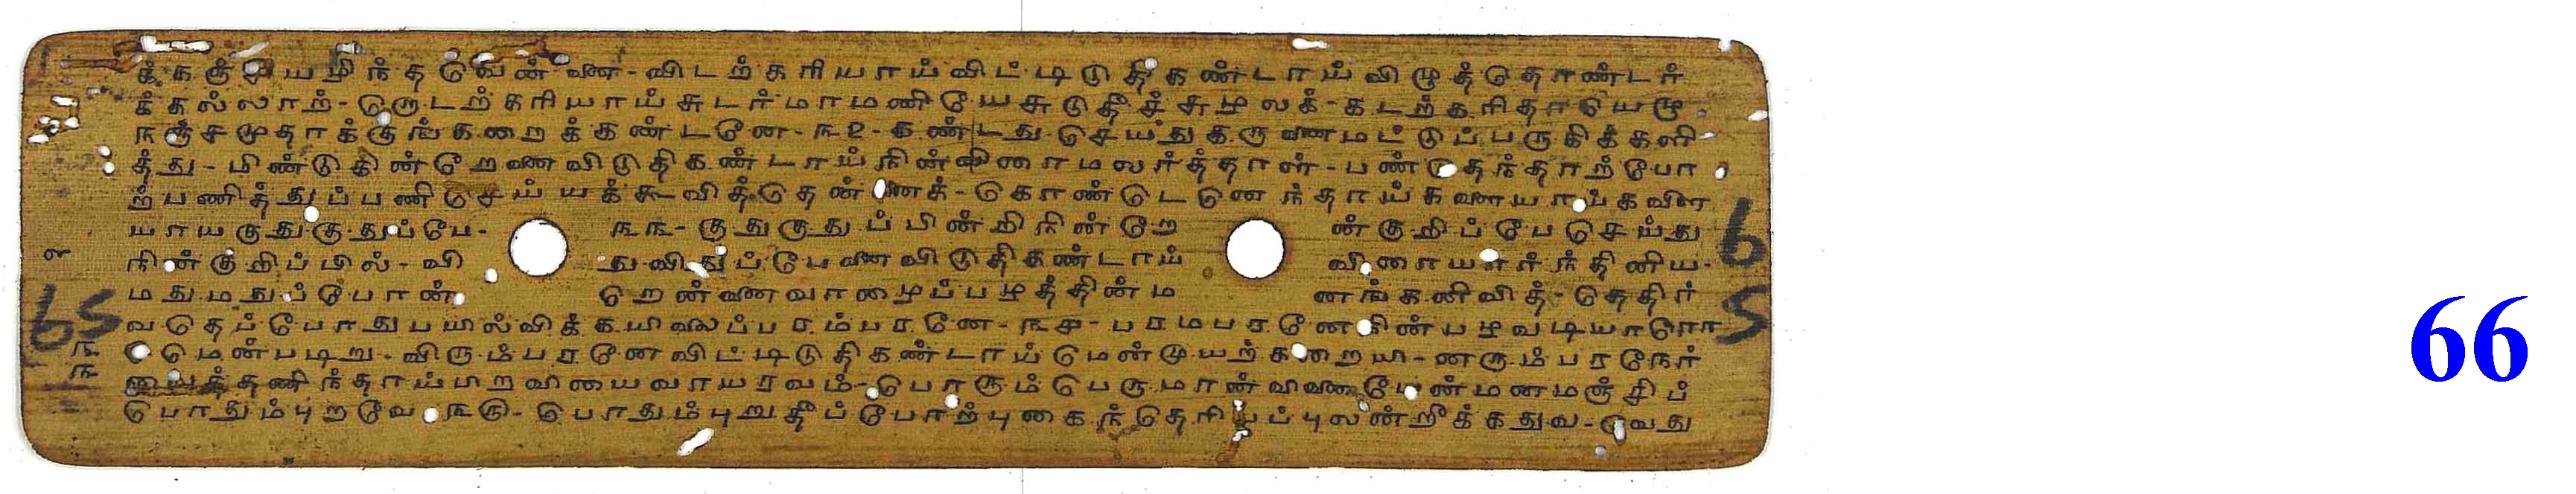 க்கஞ்சியழிந்தவென்னை-விடற்கரியாய்விட்டிடுதிகண்டாய்விழுத்தொண்டர்
க்கல்லாற்-றொடற்கரியாய்சுடர்மாமணியேசுடுதீச்சுழலக்-கடற்கரிதாயெழு
நஞ்சமுதாக்குங்கறைக்கண்டனே-௩௨-கண்டதுசெய்துகருணைமட்டுப்பருகிக்களி
த்து-மிண்டுகின்றேனைவிடுதிகண்டாய்நின்விரைமலர்த்தாள்-பண்டுதந்தாற்போ
ற்பணித்துப்பணிசெய்யக்கூவித்தென்னைக்-கொண்டெனெந்தாய்களையாய்களை
யாயகுதுகுதுப்பே- ௩௩-குதுகுதுப்பின்றிநின்றே ன்குறிப்பேசெய்து
நின்குறிப்பில்-வி துவிதுப்பேனைவிடுதிகண்டாய் விரையார்ந்தினிய-
மதுமதுப்போன் றென்னைவாழைப்பழத்தின்ம னங்கனிவித்-தெதிர்
வதெப்போதுபயில்விக்கயிலைப்பரம்பரனே-௩௪-பரம்பரனேநின்பழவடியாரொ
டுமென்படிறு-விரும்பரனேவிட்டிடுதிகண்டாய்மென்முயற்கறையி-னரும்பரநேர்
வைத்தணிந்தாய்பிறவியையவாயரவம்-பொரும்பெருமான்வினையேன்மனமஞ்சிப்
பொதும்புறவே-௩௫-பொதும்புறுதீப்போற்புகைந்தெரியப்புலன்றீக்கதுவ-வெது
65
65
௩௩
66